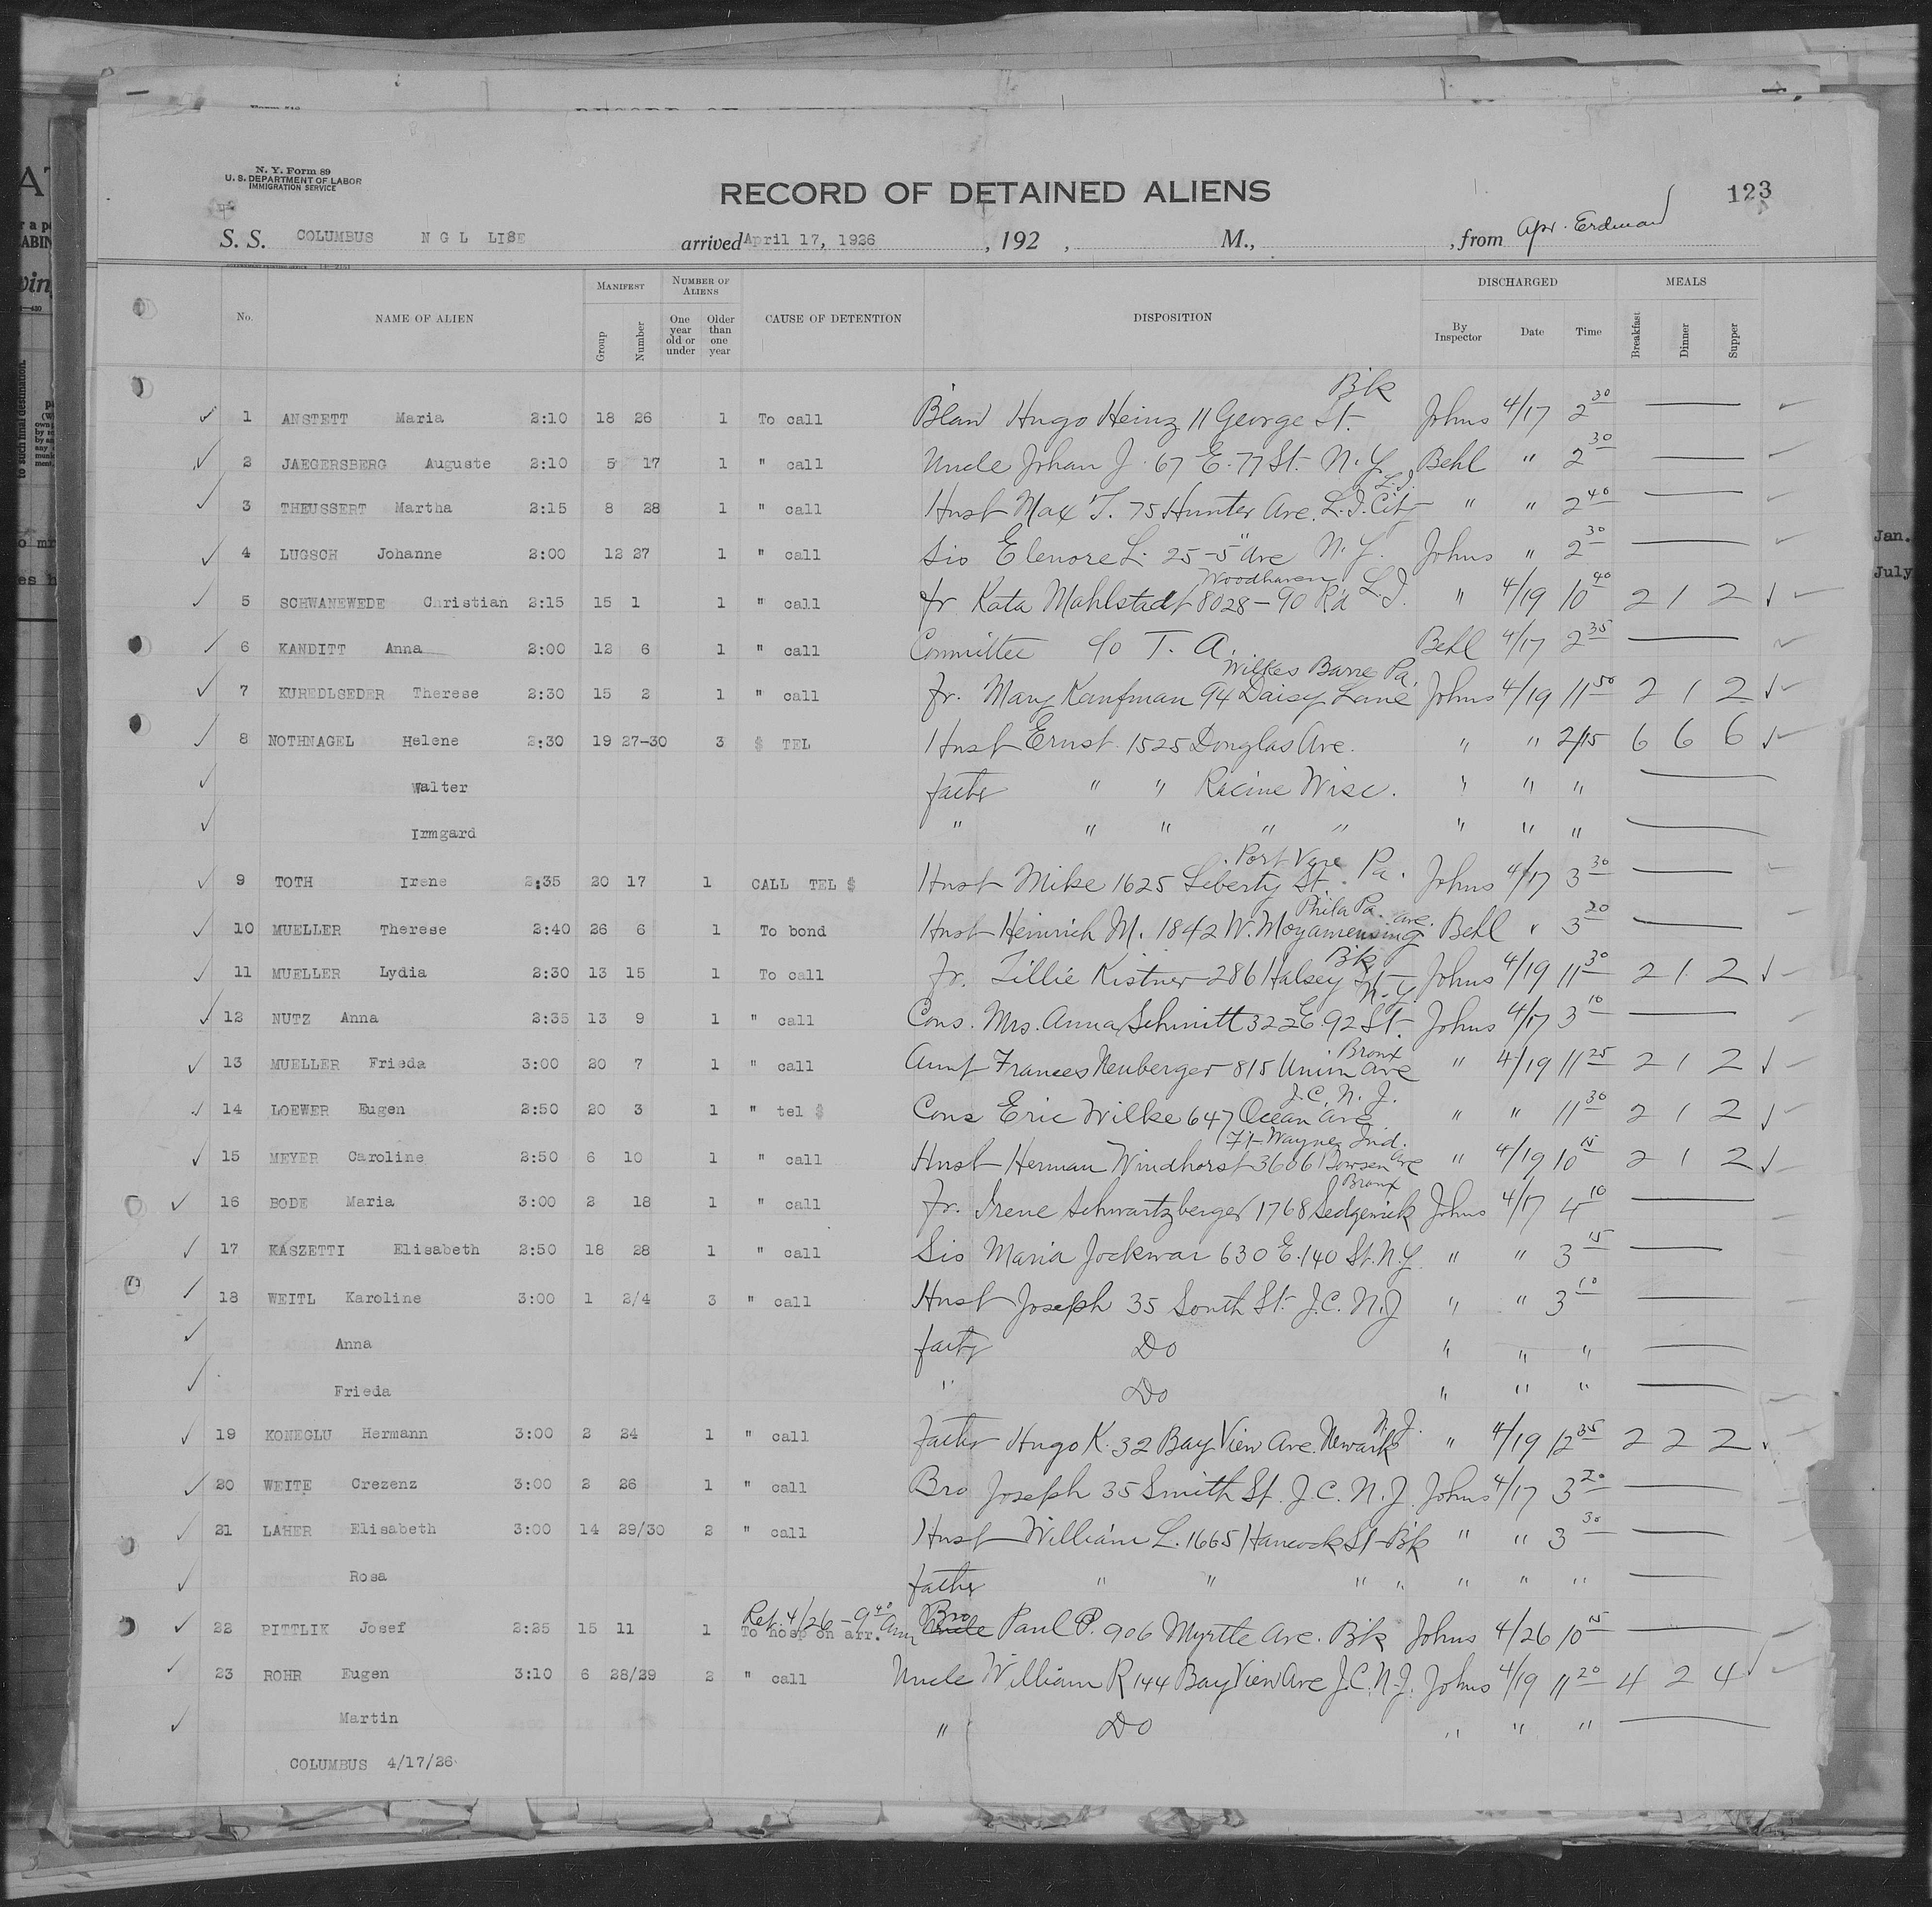 N. Y. Form 89
U. S. DEPARTMENT OF LABOR
IMMIGRATION SERVICE
RECORD OF DETAINED ALIENS
123
S. S. COLUMBUS N G L LISE arrived April 17, 1926, 192 , M., , from Apr. Erdman
No. NAME OF ALIEN MANIFEST Group Number NUMBER OF ALIENS One year old or under Older than one year CAUSE OF DETENTION DISPOSITION DISCHARGED By Inspector Date Time MEALS Breakfast Dinner Supper
1 ANSTETT Maria 2:10 18 26 1 To call Hugo Heinz 11 George St. Bk Johns 4/17 2 30
2 JAEGERSBERG Auguste 2:10 5 17 1 " call Uncle Johan J. 67 E. 77 St. N.Y. Behl " 2 30
3 THEUSSERT Martha 2:15 8 28 1 " call Husb Max T. 75 Hunter Ave. L.I. City L.I. " " 2 40
4 LUGSCH Johanne 2:00 12 27 1 " call Sis Elenore L. 25-5" Ave N.Y. Johns " 2 30
5 SCHWANEWEDE Christian 2:15 15 1 1 " call fr Kata Mahlstadt 8028-90 Rd Woodhaven L.I. " 4/19 10 40 2 1 2
6 KANDITT Anna 2:00 12 6 1 " call Committee c/o T. A. Behl 4/17 2 35
7 KUREDLSEDER Therese 2:30 15 2 1 " call Fr. Mary Kaufman 94 Daisy Lane Wilkes Barre Pa. Johns 4/19 11 50 2 1 2
8 NOTHNAGEL Helene 2:30 19 27-30 3 $ TEL Husb Ernst 1525 Douglas Ave. " " 2/15 6 6 6
Walter father " " Racine Wisc. " " "
Irmgard " " " " " " " "
9 TOTH Irene 2:35 20 17 1 CALL TEL $ Husb Mike 1625 Liberty St. Port Vue Pa. Johns 4/17 3 30
10 MUELLER Therese 2:40 26 6 1 To bond Husb Heinrich M. 1842 W. Moyamensing Ave. Phila Pa. Behl " 3 20
11 MUELLER Lydia 2:30 13 15 1 To call Fr. Tillie Kistner 286 Halsey St Bk Johns 4/19 11 30 2 1 2
12 NUTZ Anna 2:35 13 9 1 " call Cons. Mrs. Anna Schmitt 322 E. 92 St. N.Y. Johns 4/17 3 10
13 MUELLER Frieda 3:00 20 7 1 " call Aunt Frances Neuberger 815 Union Ave Bronx " 4/19 11 25 2 1 2
14 LOEWER Eugen 2:50 20 3 1 " tel $ Cons Eric Wilke 647 Ocean Ave J.C. N.J. " " 11 30 2 1 2
15 MEYER Caroline 2:50 6 10 1 " call Husb Herman Windhorst 3606 Bowser Ave Ft Wayne Ind. " 4/19 10 15 2 1 2
16 BODE Maria 3:00 2 18 1 " call Fr. Irene Schwartzberger 1768 Sedgewick Bronx Johns 4/17 4 10
17 KASZETTI Elisabeth 2:50 18 28 1 " call Sis Maria Jockwar 630 E. 140 St. N.Y. " " 3 15
18 WEITL Karoline 3:00 1 2/4 3 " call Husb Joseph 35 South St. J.C. N.J " " 3 10
Anna father Do " " "
Frieda " Do " " "
19 KONEGLU Hermann 3:00 2 24 1 " call Father Hugo K. 32 Bay View Ave. Newark N.J. " 4/19 12 35 2 2 2
20 WEITE Crezenz 3:00 2 26 1 " call Bro Joseph 35 Smith St. J.C. N.J. Johns 4/17 3 20
21 LAHER Elisabeth 3:00 14 29/30 2 " call Husb William L. 1665 Hancock St Bk " " 3 30
Rosa father " " " " " " "
22 PITTLIK Josef 2:25 15 11 1 To hosp on arr. Ret. 4/26 - 9 40 Am Bro Paul P. 906 Myrtle Ave. Bk Johns 4/26 10 15
23 ROHR Eugen 3:10 6 28/29 2 " call Uncle William R 144 Bay View Ave J.C. N.J. Johns 4/19 11 20 4 2 4
Martin " Do " " "
COLUMBUS 4/17/26